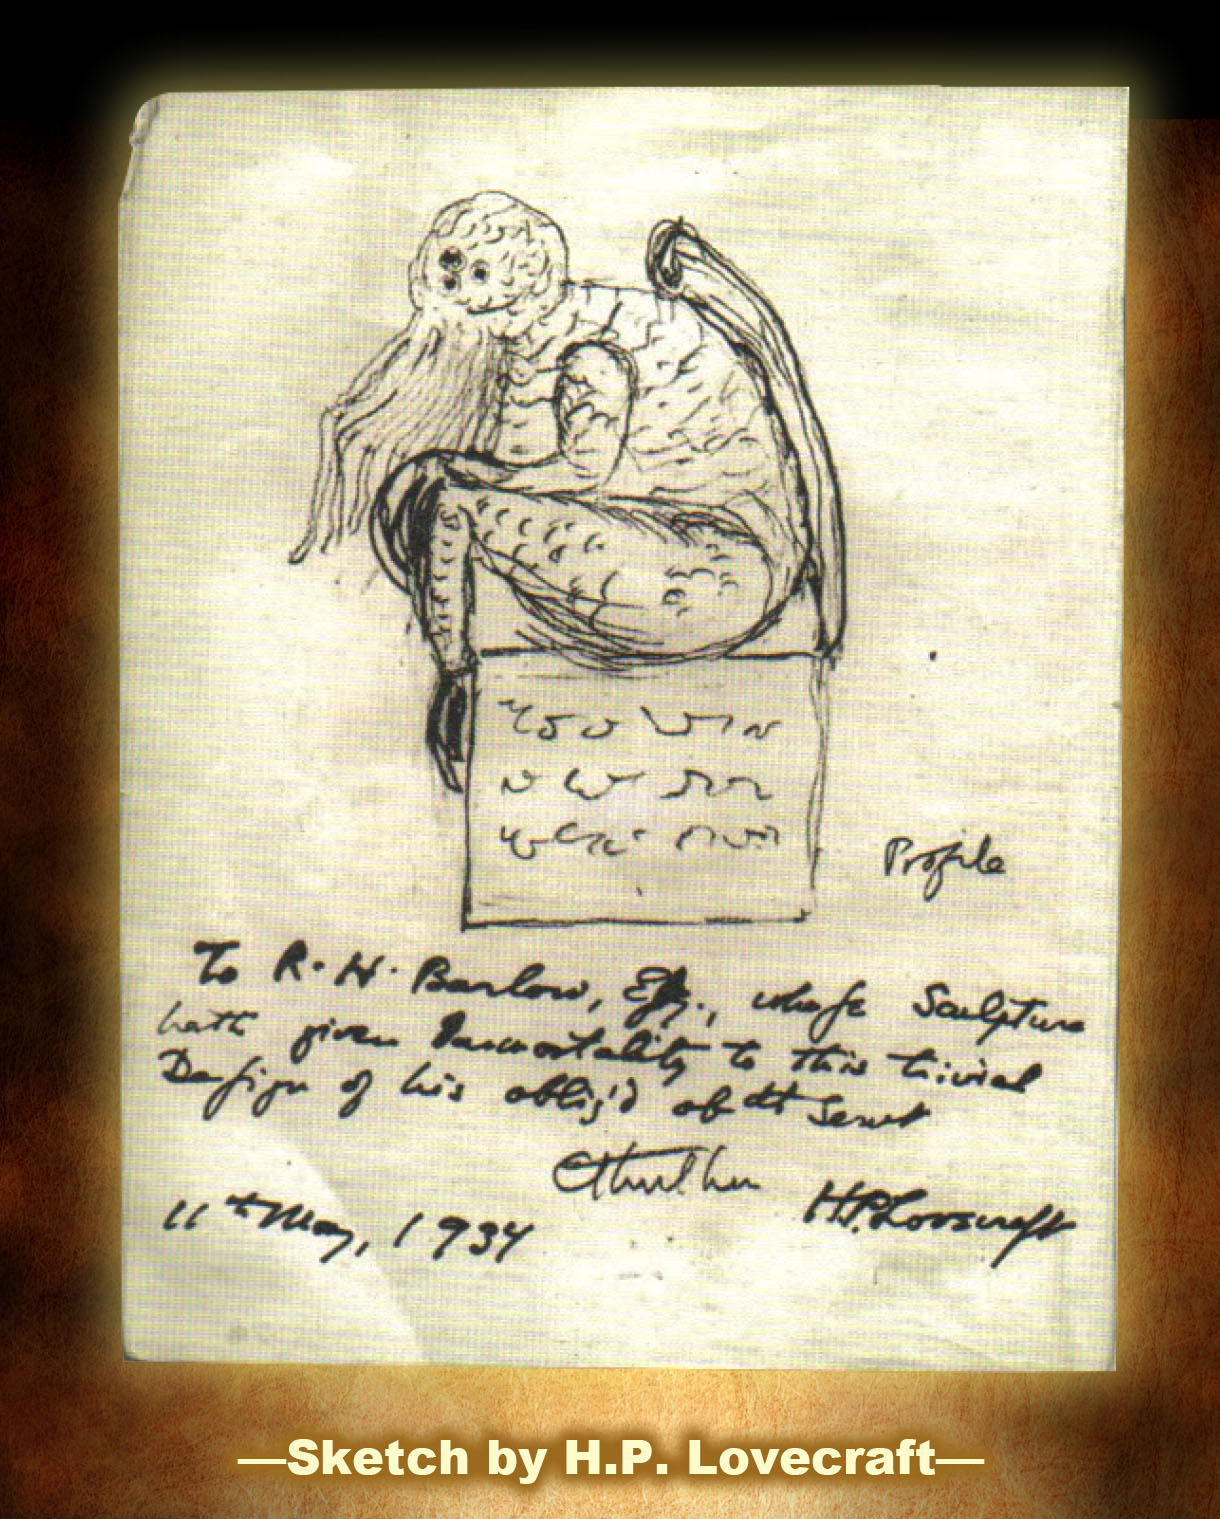 Profile
To R. H. Barlow, Esq., whose Sculpture
hath given Immortality to this trivial
Design of his oblig'd obdt Servt
Cthulhu
H.P. Lovecraft
11th May, 1934
—Sketch by H.P. Lovecraft—